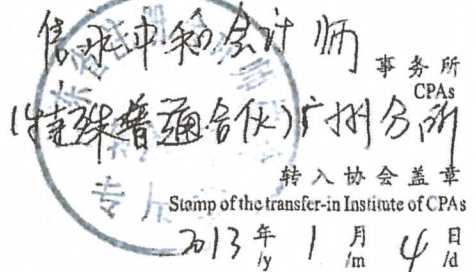 信永中和会计师 事务所
CPAs
(特殊普通合伙)广州分所
转入协会盖章
Stamp of the transfer-in Institute of CPAs
2013 年 1 月 4 日
/y /m /d